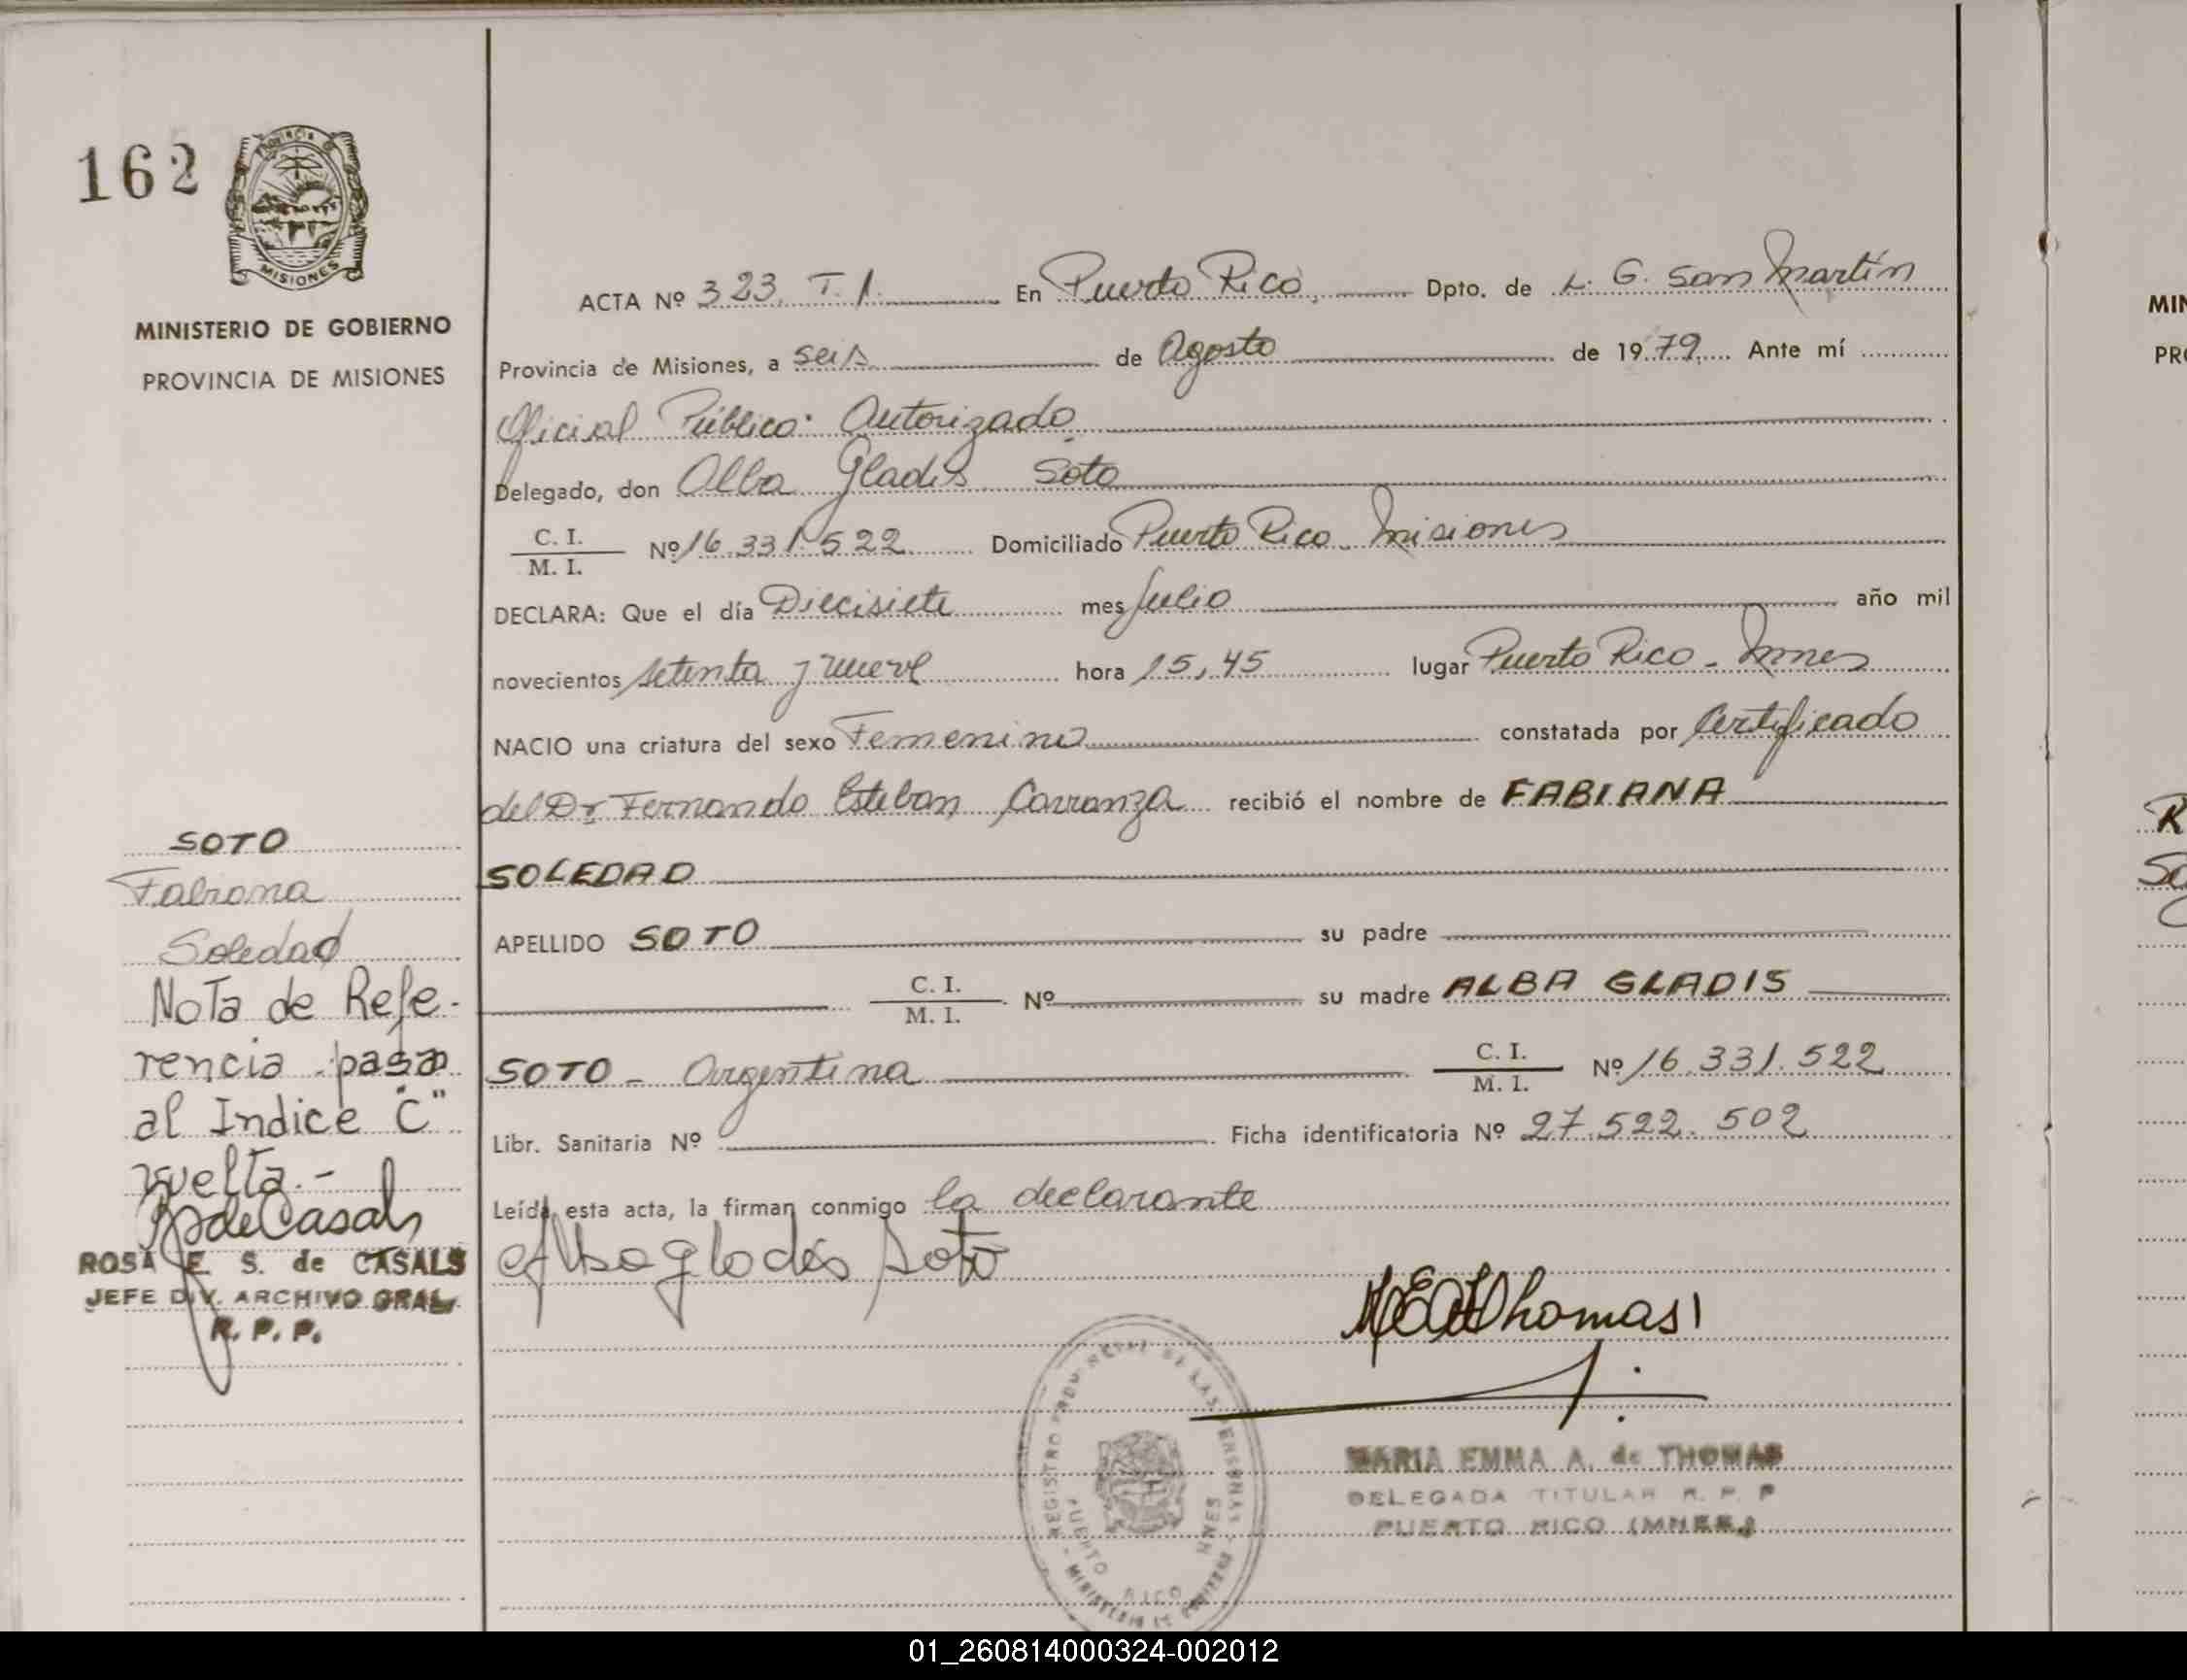 162
PROVINCIA
MISIONES
MINISTERIO DE GOBIERNO
PROVINCIA DE MISIONES
SOTO
Fabiana
Soledad
Nota de Refe-
rencia pasa
al Indice "C"
vuelta.-
RdeCasals
ROSA E. S. de CASALS
JEFE DIV. ARCHIVO GRAL.
R. P. P.
ACTA Nº 323. T. 1. En Puerto Rico, Dpto. de L. G. San Martín
Provincia de Misiones, a seis de Agosto de 1979 Ante mí
Oficial Público Autorizado
Delegado, don Alba Gladis Soto
C. I.
M. I. Nº 16.331.522 Domiciliado Puerto Rico - Misiones
DECLARA: Que el día Diecisiete mes Julio año mil
novecientos setenta y nueve hora 15,45 lugar Puerto Rico - Mnes
NACIO una criatura del sexo Femenino constatada por Certificado
del Dr Fernando Esteban Carranza recibió el nombre de FABIANA
SOLEDAD
APELLIDO SOTO su padre
C. I.
M. I. Nº su madre ALBA GLADIS
SOTO - Argentina C. I.
M. I. Nº 16.331.522
Libr. Sanitaria Nº Ficha identificatoria Nº 27.522.502
Leída esta acta, la firman conmigo la declarante
Alba gladis soto
MEAdeThomas
REGISTRO PROVINCIAL DE LAS PERSONAS
PUERTO RICO MNES
MINISTERIO DE GOBIERNO
MARIA EMMA A. de THOMAS
DELEGADA TITULAR R. P. P
PUERTO RICO (MNES.)
MIN
PRO
R
So
01_260814000324-002012